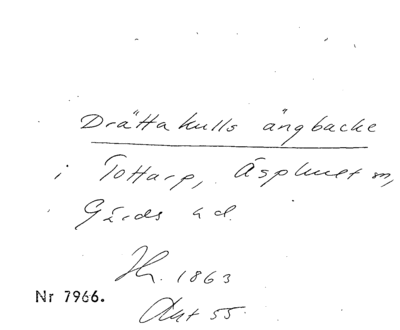 Drättakulls ängbacke
i Tottarp, Äsphult sn,
Gärds hd.
Hr. 1863
Nr 7966.
Akt 55.